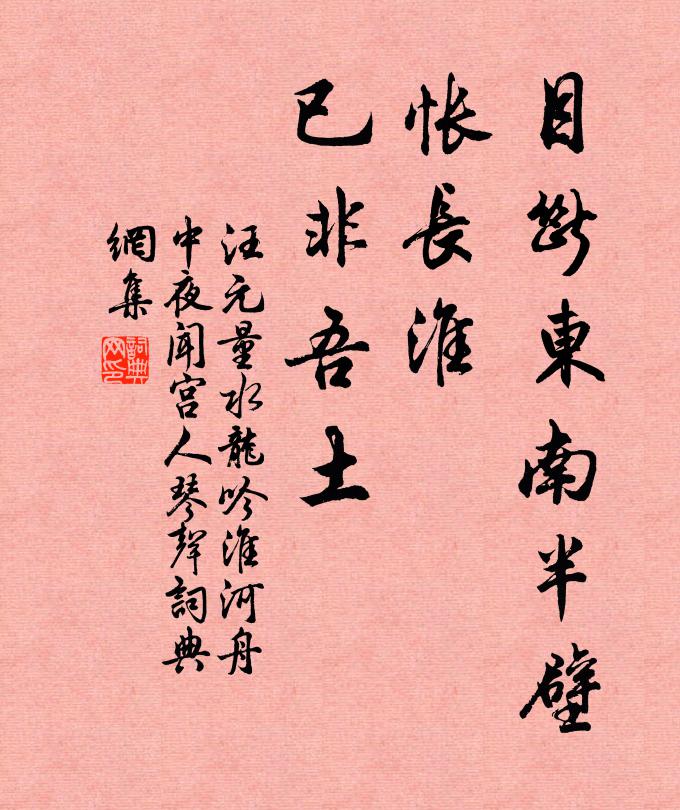 目斷東南半壁
悵長淮
已非吾土
汪元量水龍吟淮河舟
中夜聞宮人琴聲詞典
網集
詞典網印